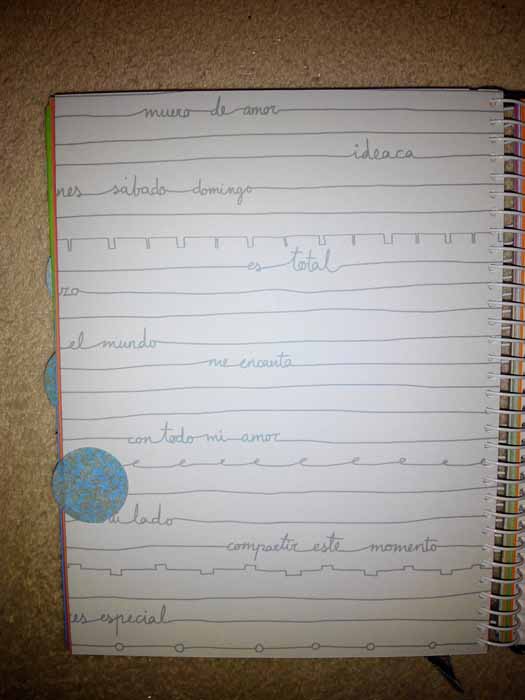 muero de amor
ideaca
nes sábado domingo
es total
rzo
el mundo
me encanta
con todo mi amor
lado
compartir este momento
es especial